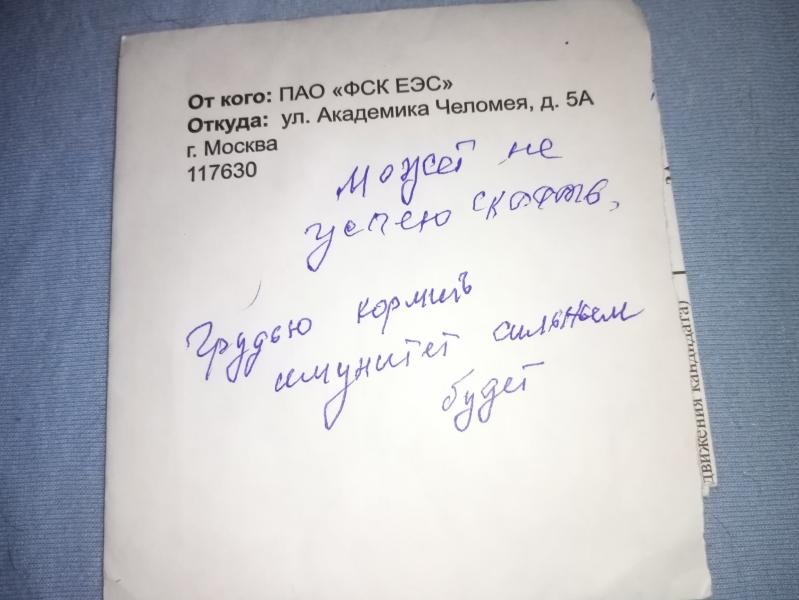 От кого: ПАО «ФСК ЕЭС»
Откуда: ул. Академика Челомея, д. 5А
г. Москва
117630
Может не
успею сказать,
грудью кормить
имунитет сильнем
будет
движения кандидата)